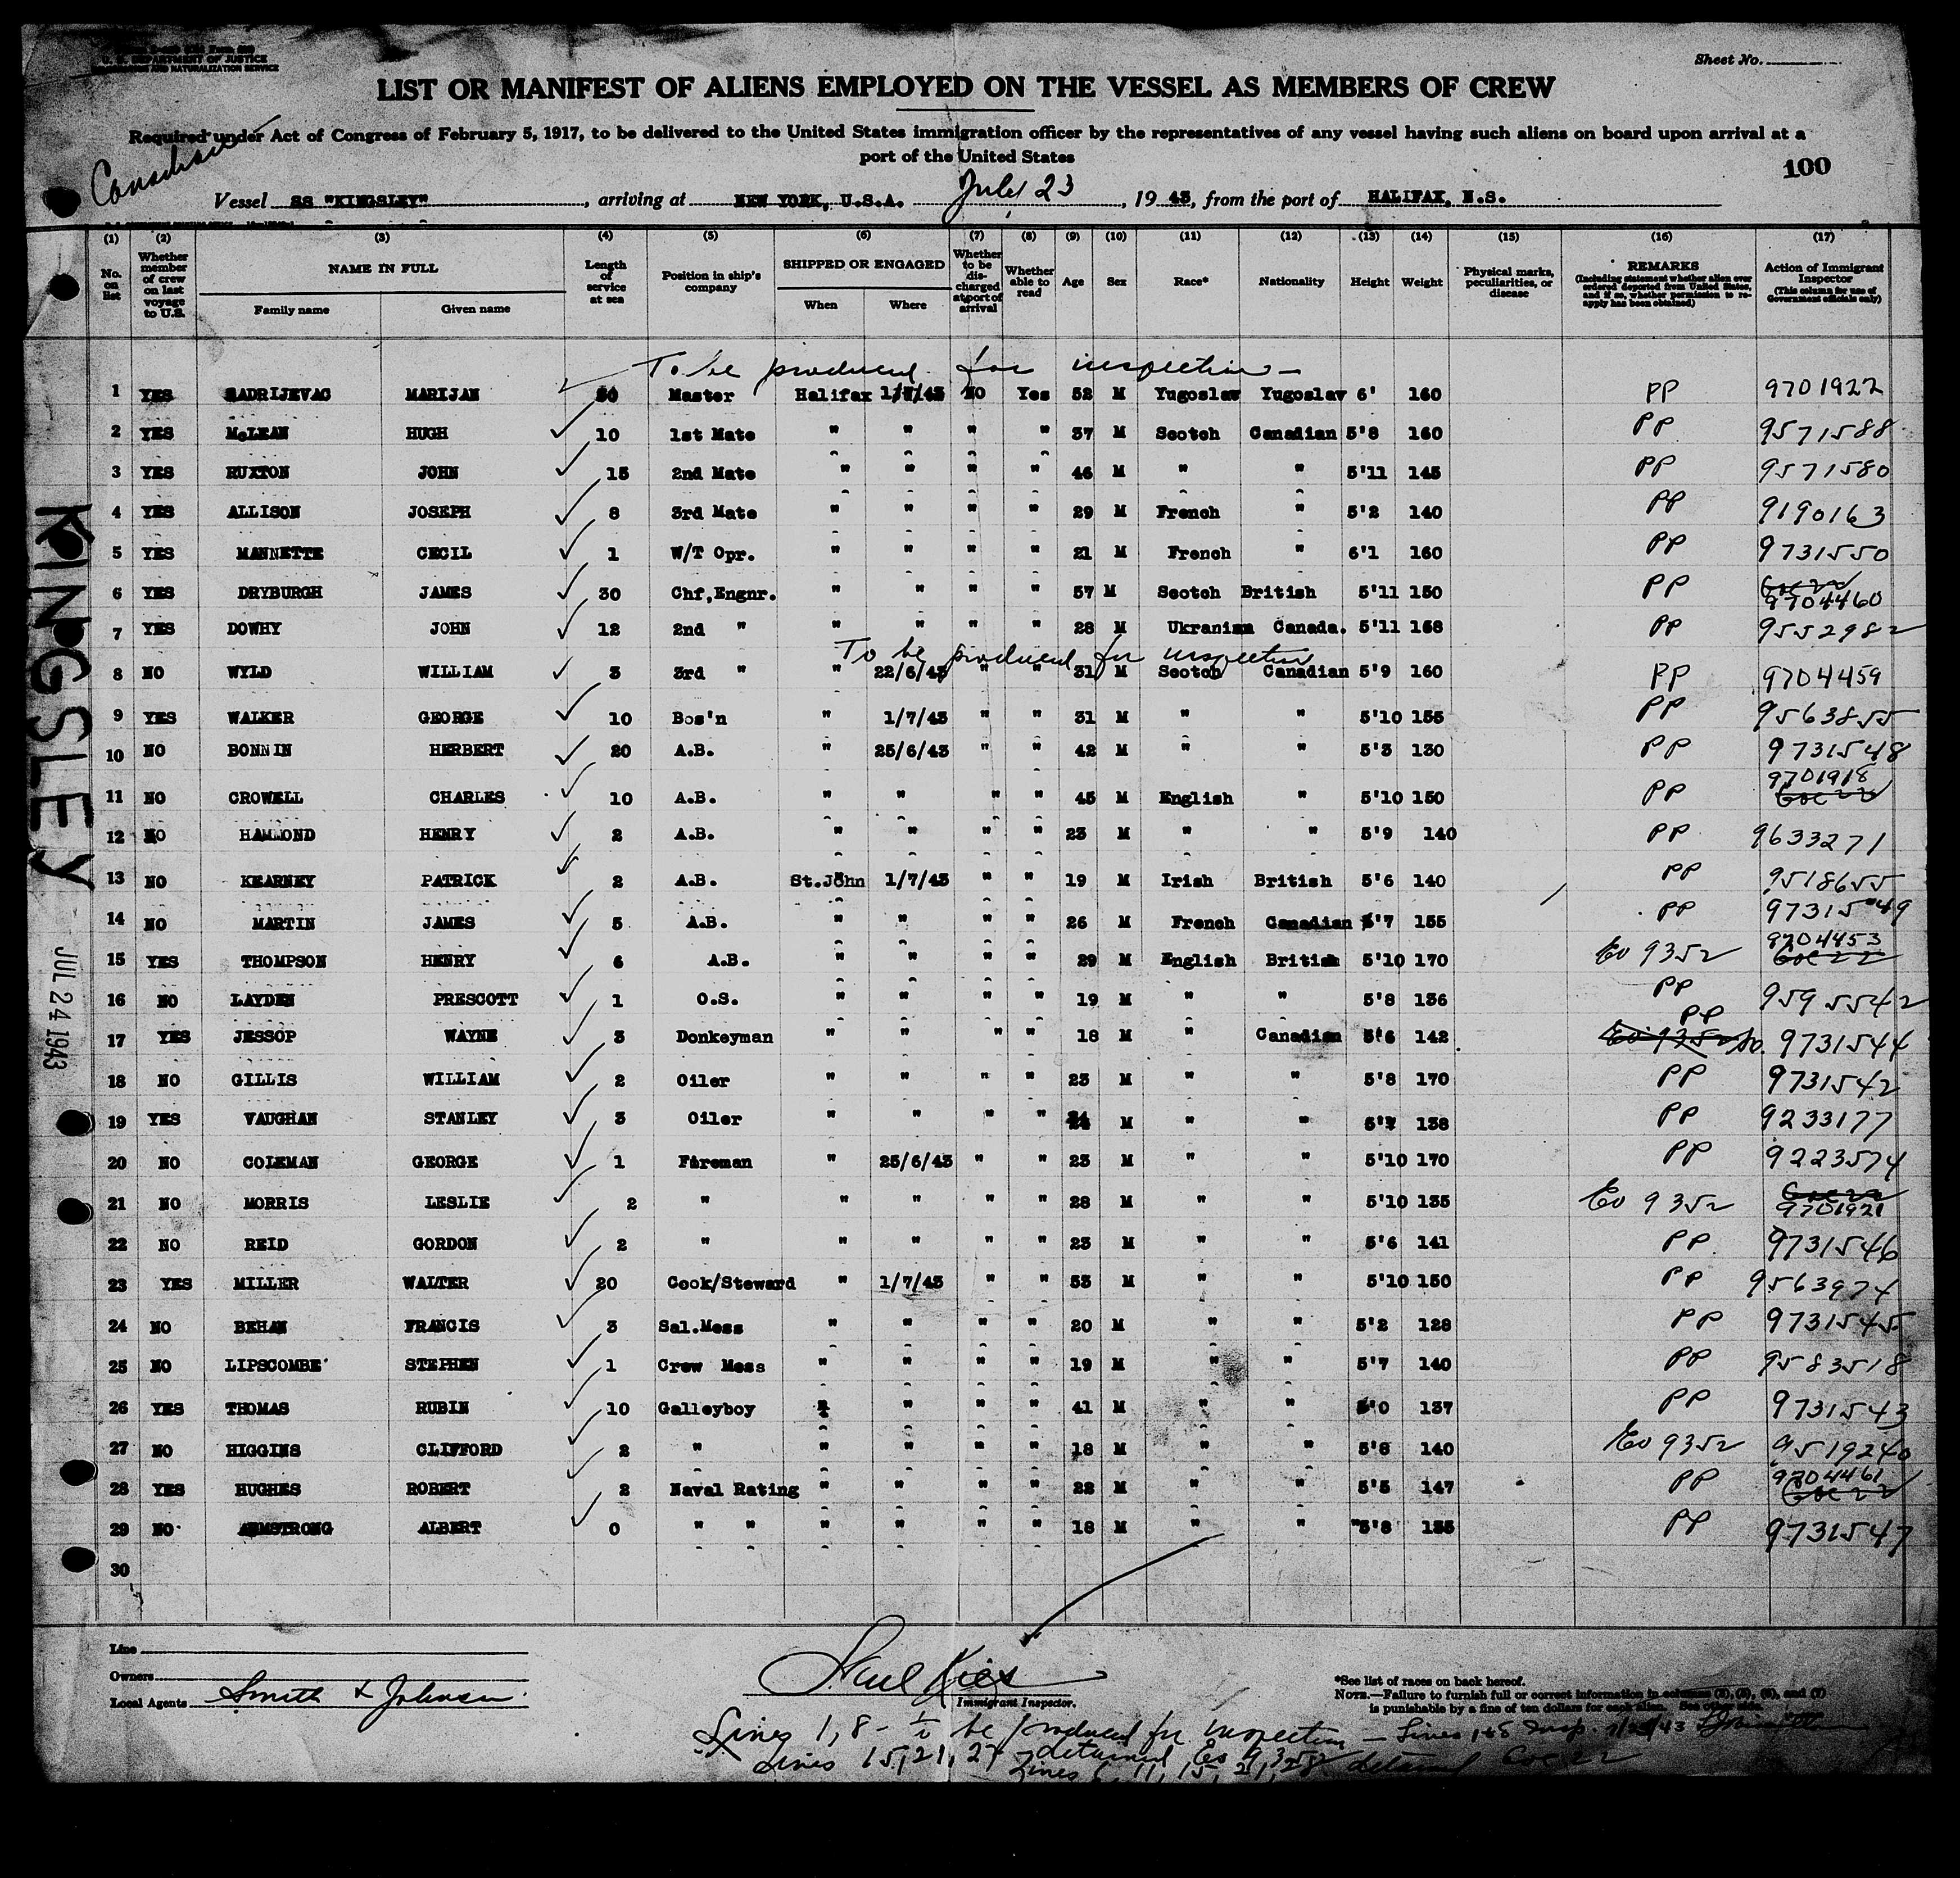 U. S. DEPARTMENT OF JUSTICE
IMMIGRATION AND NATURALIZATION SERVICE
Sheet No.
LIST OR MANIFEST OF ALIENS EMPLOYED ON THE VESSEL AS MEMBERS OF CREW
Required under Act of Congress of February 5, 1917, to be delivered to the United States immigration officer by the representatives of any vessel having such aliens on board upon arrival at a
port of the United States
100
Canadian
Vessel SS "KINGSLEY", arriving at NEW YORK, U.S.A. July 23, 19 43, from the port of HALIFAX, N.S.
(1) (2) (3) (4) (5) (6) (7) (8) (9) (10) (11) (12) (13) (14) (15) (16) (17)
No. on list Whether member of crew on last voyage to U.S. NAME IN FULL Family name Given name Length of service at sea Position in ship's company SHIPPED OR ENGAGED When Where Whether to be discharged at port of arrival Whether able to read Age Sex Race* Nationality Height Weight Physical marks, peculiarities, or disease REMARKS (Including statement whether alien ever ordered deported from United States, and if so, whether permission to reapply has been obtained) Action of Immigrant Inspector (This column for use of Government officials only)
To be produced for inspection
1 YES MARIJAN Master Halifax NO Yes 52 M Yugoslav Yugoslav 6' 160 PP 9701922
2 YES McLEAN HUGH 10 1st Mate " " " " 37 M Scotch Canadian 5'8 160 PP 9571588
3 YES RUXTON JOHN 15 2nd Mate " " " " 46 M " " 5'11 145 PP 9571580
4 YES ALLISON JOSEPH 8 3rd Mate " " " " 29 M French " 5'2 140 PP 9190163
5 YES MANNETTE CECIL 1 W/T Opr. " " " " 21 M French " 6'1 160 PP 9731550
6 YES DRYBURGH JAMES 30 Chf,Engnr. " " " " 57 M Scotch British 5'11 150 PP 9704460
7 YES DOWHY JOHN 12 2nd " " " " " 28 M Ukranian Canada. 5'11 168 PP 9552982
To be produced for inspection
8 NO WYLD WILLIAM 3 3rd " " 22/6/43 " " 31 M Scotch Canadian 5'9 160 PP 9704459
9 YES WALKER GEORGE 10 Bos'n " 1/7/43 " " 31 M " " 5'10 155 PP 9563855
10 NO BONNIN HERBERT 20 A.B. " 25/6/43 " " 42 M " " 5'3 130 PP 9731548
11 NO CROWELL CHARLES 10 A.B. " " " " 45 M English " 5'10 150 PP 9701918
12 NO HAMMOND HENRY 2 A.B. " " " " 23 M " " 5'9 140 PP 9633271
13 NO KEARNEY PATRICK 2 A.B. St.John 1/7/43 " " 19 M Irish British 5'6 140 PP 9518655
14 NO MARTIN JAMES 5 A.B. " " " " 26 M French Canadian 5'7 155 PP 9731549
15 YES THOMPSON HENRY 6 A.B. " " " " 29 M English British 5'10 170 Eo 9352 9704453
16 NO LAYDEN PRESCOTT 1 O.S. " " " " 19 M " " 5'8 136 PP 9595542
17 YES JESSOP WAYNE 3 Donkeyman " " " " 18 M " Canadian 5'6 142 PP 9731544
18 NO GILLIS WILLIAM 2 Oiler " " " " 23 M " " 5'8 170 PP 9731542
19 YES VAUGHAN STANLEY 3 Oiler " " " " M " " 138 PP 9233177
20 NO COLEMAN GEORGE 1 Fireman " 25/6/43 " " 23 M " " 5'10 170 PP 9223574
21 NO MORRIS LESLIE 2 " " " " " 28 M " " 5'10 135 Eo 9352 9701921
22 NO REID GORDON 2 " " " " " 23 M " " 5'6 141 PP 9731546
23 YES MILLER WALTER 20 Cook/Steward " 1/7/43 " " 53 M " " 5'10 150 PP 9563974
24 NO BEHAN FRANCIS 3 Sal.Mess " " " " 20 M " " 5'2 128 PP 9731545
25 NO LIPSCOMBE STEPHEN 1 Crew Mess " " " " 19 M " " 5'7 140 PP 9583518
26 YES THOMAS RUBIN 10 Galleyboy " " " 41 M " " 137 PP 9731543
27 NO HIGGINS CLIFFORD 2 " " " " " 18 M " " 5'8 140 Eo 9352 9519240
28 YES HUGHES ROBERT 2 Naval Rating " " " " 22 M " " 5'5 147 PP 9704461
29 NO ARMSTRONG ALBERT 0 " " " " " " 18 M " " 5'8 135 PP 9731547
30
KINGSLEY
JUL 24 1943
Line
Owners
Local Agents Smith & Johnson
Immigrant Inspector.
*See list of races on back hereof.
NOTE.—Failure to furnish full or correct information in columns (2), (5), (6), and (7)
is punishable by a fine of ten dollars for each alien. See other side.
Lines 1, 8 - to be produced for inspection
Lines 15, 21, 27 detained Eo 9352
Lines 6, 11, 15, 21, 28 detained